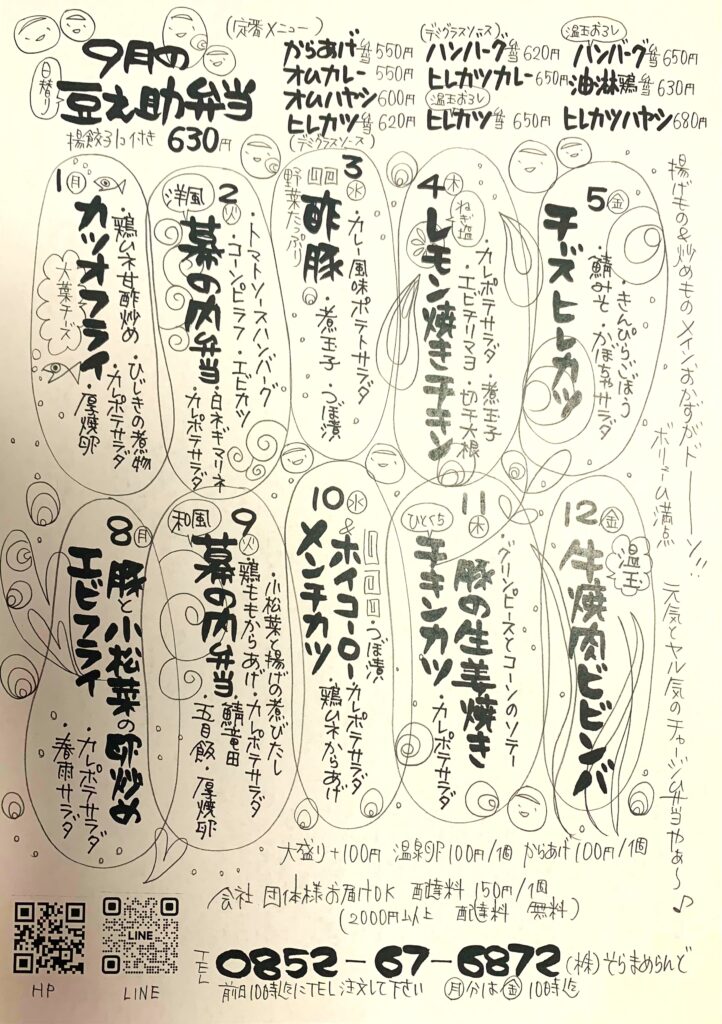 9月の
日替り
豆之助弁当
揚餃子1コ付き 630円
(定番メニュー)
からあげ弁当 550円
オムカレー 550円
オムハヤシ 600円
ヒレカツ弁当 620円
(デミグラスソース)
(デミグラスソース)
ハンバーグ弁当 620円
ヒレカツカレー 650円
温玉おろし
ヒレカツ弁当 650円
温玉おろし
ハンバーグ弁当 650円
油淋鶏弁当 630円
ヒレカツハヤシ 680円
1 月
カツオフライ
大葉チーズ
・鶏ムネ甘酢炒め
・ひじきの煮物
・カレポテサラダ
・厚焼卵
洋風
2 火
幕の内弁当
・トマトソースハンバーグ
・コーンピラフ・エビカツ
・白ネギマリネ
・カレポテサラダ
3 水
野菜たっぷり
酢豚
・カレー風味ポテトサラダ
・煮玉子・つぼ漬
4 木
ねぎ塩
レモン焼きチキン
・カレポテサラダ・煮玉子
・エビチリマヨ・切干大根
5 金
チーズヒレカツ
・きんぴらごぼう
・鯖みそ・かぼちゃサラダ
揚げもの&炒めもの メインおかずがドーーン!!
ボリューム満点
8 月
豚と小松菜の卵炒め
エビフライ
・カレポテサラダ
・春雨サラダ
和風
9 火
幕の内弁当
・小松菜と揚げの煮びたし
・鶏モモからあげ・カレポテサラダ
・鯖竜田
・五目飯・厚焼卵
10 水
ホイコーロー
&
メンチカツ
・つぼ漬
・カレポテサラダ
・鶏ムネからあげ
11 木
豚の生姜焼き
ひとくち
チキンカツ
・グリンピースとコーンのソテー
・カレポテサラダ
12 金
温玉
牛焼肉ビビンバ
元気とヤル気のチャージ弁当やぁ〜♪
大盛り+100円 温泉卵100円/1個 からあげ100円/1個
会社 団体様お届けOK 配達料 150円/1個
(2000円以上 配達料 無料)
TEL 0852-67-6872 (株)そらまめらんど
前日10時迄にTEL注文して下さい 月分は金 10時迄
HP
LINE
LINE